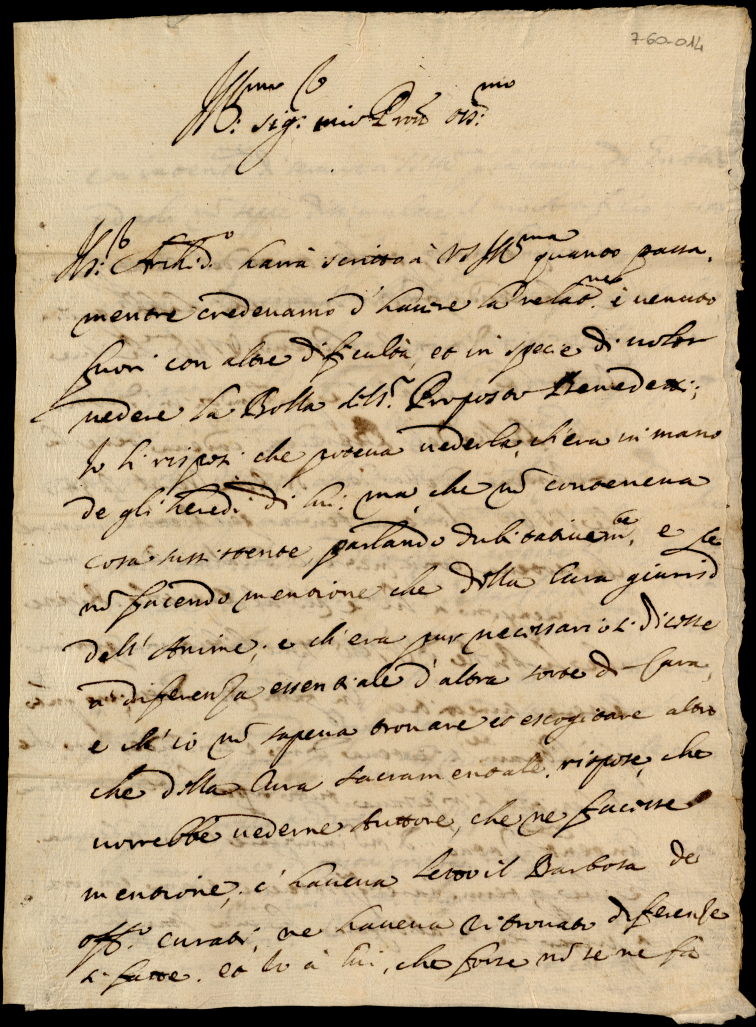 7-60-014
Ill.mo
sig.r mio Pron oss.mo
Archid.o havrà scritto à VS Ill.ma quanto passa,
mentre credevamo d'havere la relat.ne è venuto
fuori con altre difficultà, et in specie di voler
vedere la Bolla del S.r Proposto Benedetti;
Io li risposi che poteva vederla, ch'era in mano
de gli heredi di lui; ma, che nõ conteneva
cosa sussistente, parlando dubitativem.te, e
nõ facendo mentione che della Cura
dell'Anime; e ch'era pur necessario si dicesse
a diferenza essentiale d'altra sorte di Cura,
e ch'io nõ sapeva trovare et escogitare altro
che della Cura sacramentale. rispose, che
vorrebbe vederne Auttore, che ne facesse
mentione, c'haveva letto il Barbosa de
off.o curati, ne haveva ritrovato diferenze
sì fatte. et Io à lui, che forse nõ se ne fa